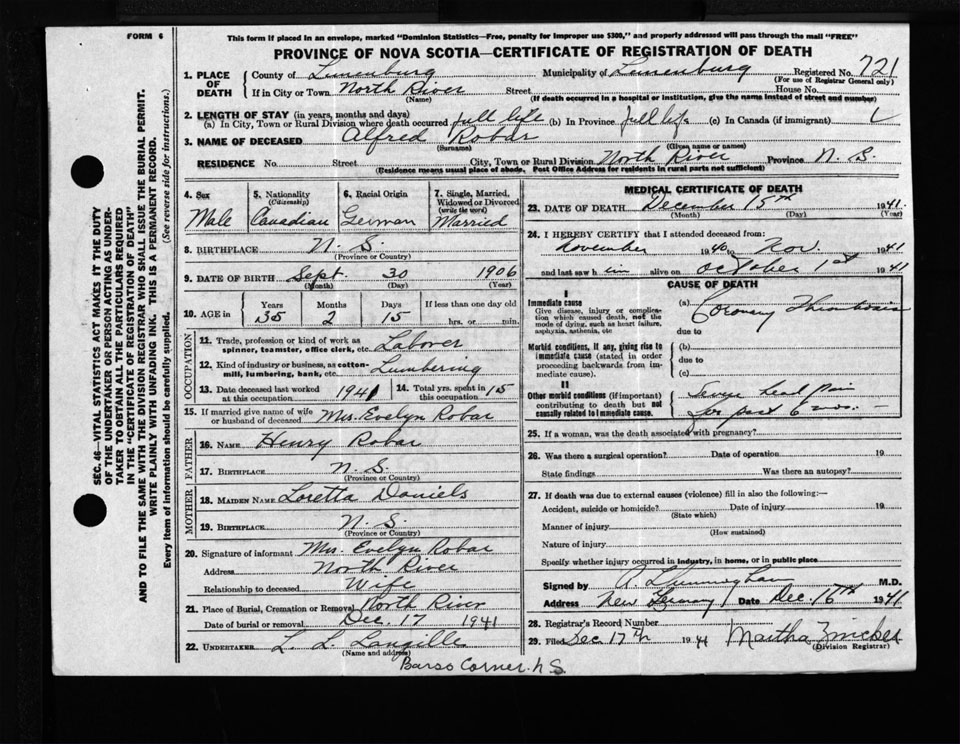 FORM 6
This form if placed in an envelope, marked "Dominion Statistics—Free, penalty for improper use $300," and properly addressed will pass through the mail "FREE"
PROVINCE OF NOVA SCOTIA—CERTIFICATE OF REGISTRATION OF DEATH
SEC. 46—VITAL STATISTICS ACT MAKES IT THE DUTY
OF THE UNDERTAKER OR PERSON ACTING AS UNDER-
TAKER TO OBTAIN ALL THE PARTICULARS REQUIRED
IN THE "CERTIFICATE OF REGISTRATION OF DEATH"
AND TO FILE THE SAME WITH THE DIVISION REGISTRAR WHO SHALL ISSUE THE BURIAL PERMIT.
WRITE PLAINLY WITH UNFADING INK. THIS IS A PERMANENT RECORD.
Every item of information should be carefully supplied. (See reverse side for instructions.)
1. PLACE OF DEATH County of Lunenburg Municipality of Lunenburg Registered No. 721
(For use of Registrar General only)
If in City or Town North River Street House No.
(Name) (If death occurred in a hospital or institution, give the name instead of street and number)
2. LENGTH OF STAY (in years, months and days)
(a) In City, Town or Rural Division where death occurred full life (b) In Province full life (c) In Canada (if immigrant)
3. NAME OF DECEASED Alfred Robar
(Surname) (Given name or names)
RESIDENCE No. Street City, Town or Rural Division North River Province N. S.
(Residence means usual place of abode. Post Office Address for residents in rural parts not sufficient)
4. Sex Male
5. Nationality (Citizenship) Canadian
6. Racial Origin German
7. Single, Married, Widowed or Divorced (write the word) Married
8. BIRTHPLACE N. S.
(Province or Country)
9. DATE OF BIRTH Sept. 30 1906
(Month) (Day) (Year)
10. AGE in Years Months Days If less than one day old
35 2 15 hrs. or min.
OCCUPATION
11. Trade, profession or kind of work as spinner, teamster, office clerk, etc. Laborer
12. Kind of industry or business, as cotton-mill, lumbering, bank, etc. Lumbering
13. Date deceased last worked at this occupation 1941 14. Total yrs. spent in this occupation 15
15. If married give name of wife or husband of deceased Mrs. Evelyn Robar
FATHER
16. NAME Henry Robar
17. BIRTHPLACE N. S.
(Province or Country)
MOTHER
18. MAIDEN NAME Loretta Daniels
19. BIRTHPLACE N. S.
(Province or Country)
20. Signature of informant Mrs. Evelyn Robar
Address North River
Relationship to deceased Wife
21. Place of Burial, Cremation or Removal North River
Date of burial or removal Dec. 17 1941
22. UNDERTAKER L. L. Langille
(Name and address)
Barss Corner. N S.
MEDICAL CERTIFICATE OF DEATH
23. DATE OF DEATH December 15th 1941.
(Month) (Day)
24. I HEREBY CERTIFY that I attended deceased from:
November 1940 to Nov. 1941
and last saw h im alive on October 1st 1941
CAUSE OF DEATH
I
Immediate cause
Give disease, injury or complication which caused death, not the mode of dying, such as heart failure, asphyxia, asthenia, etc
(a) Coronary Thrombosis
due to
Morbid conditions, if any, giving rise to immediate cause (stated in order proceeding backwards from immediate cause).
(b)
due to
(c)
II
Other morbid conditions (if important) contributing to death but not causally related to immediate cause.
Severe head pain
for past 6 mos. —
25. If a woman, was the death associated with pregnancy?
26. Was there a surgical operation? Date of operation 19
State findings Was there an autopsy?
27. If death was due to external causes (violence) fill in also the following:—
Accident, suicide or homicide? Date of injury 19
(State which)
Manner of injury
(How sustained)
Nature of injury
Specify whether injury occurred in industry, in home, or in public place
Signed by M.D.
Address New Germany Date Dec. 16th 1941
28. Registrar's Record Number
29. Filed Dec 17th 1941 Martha Zinck
(Division Registrar)